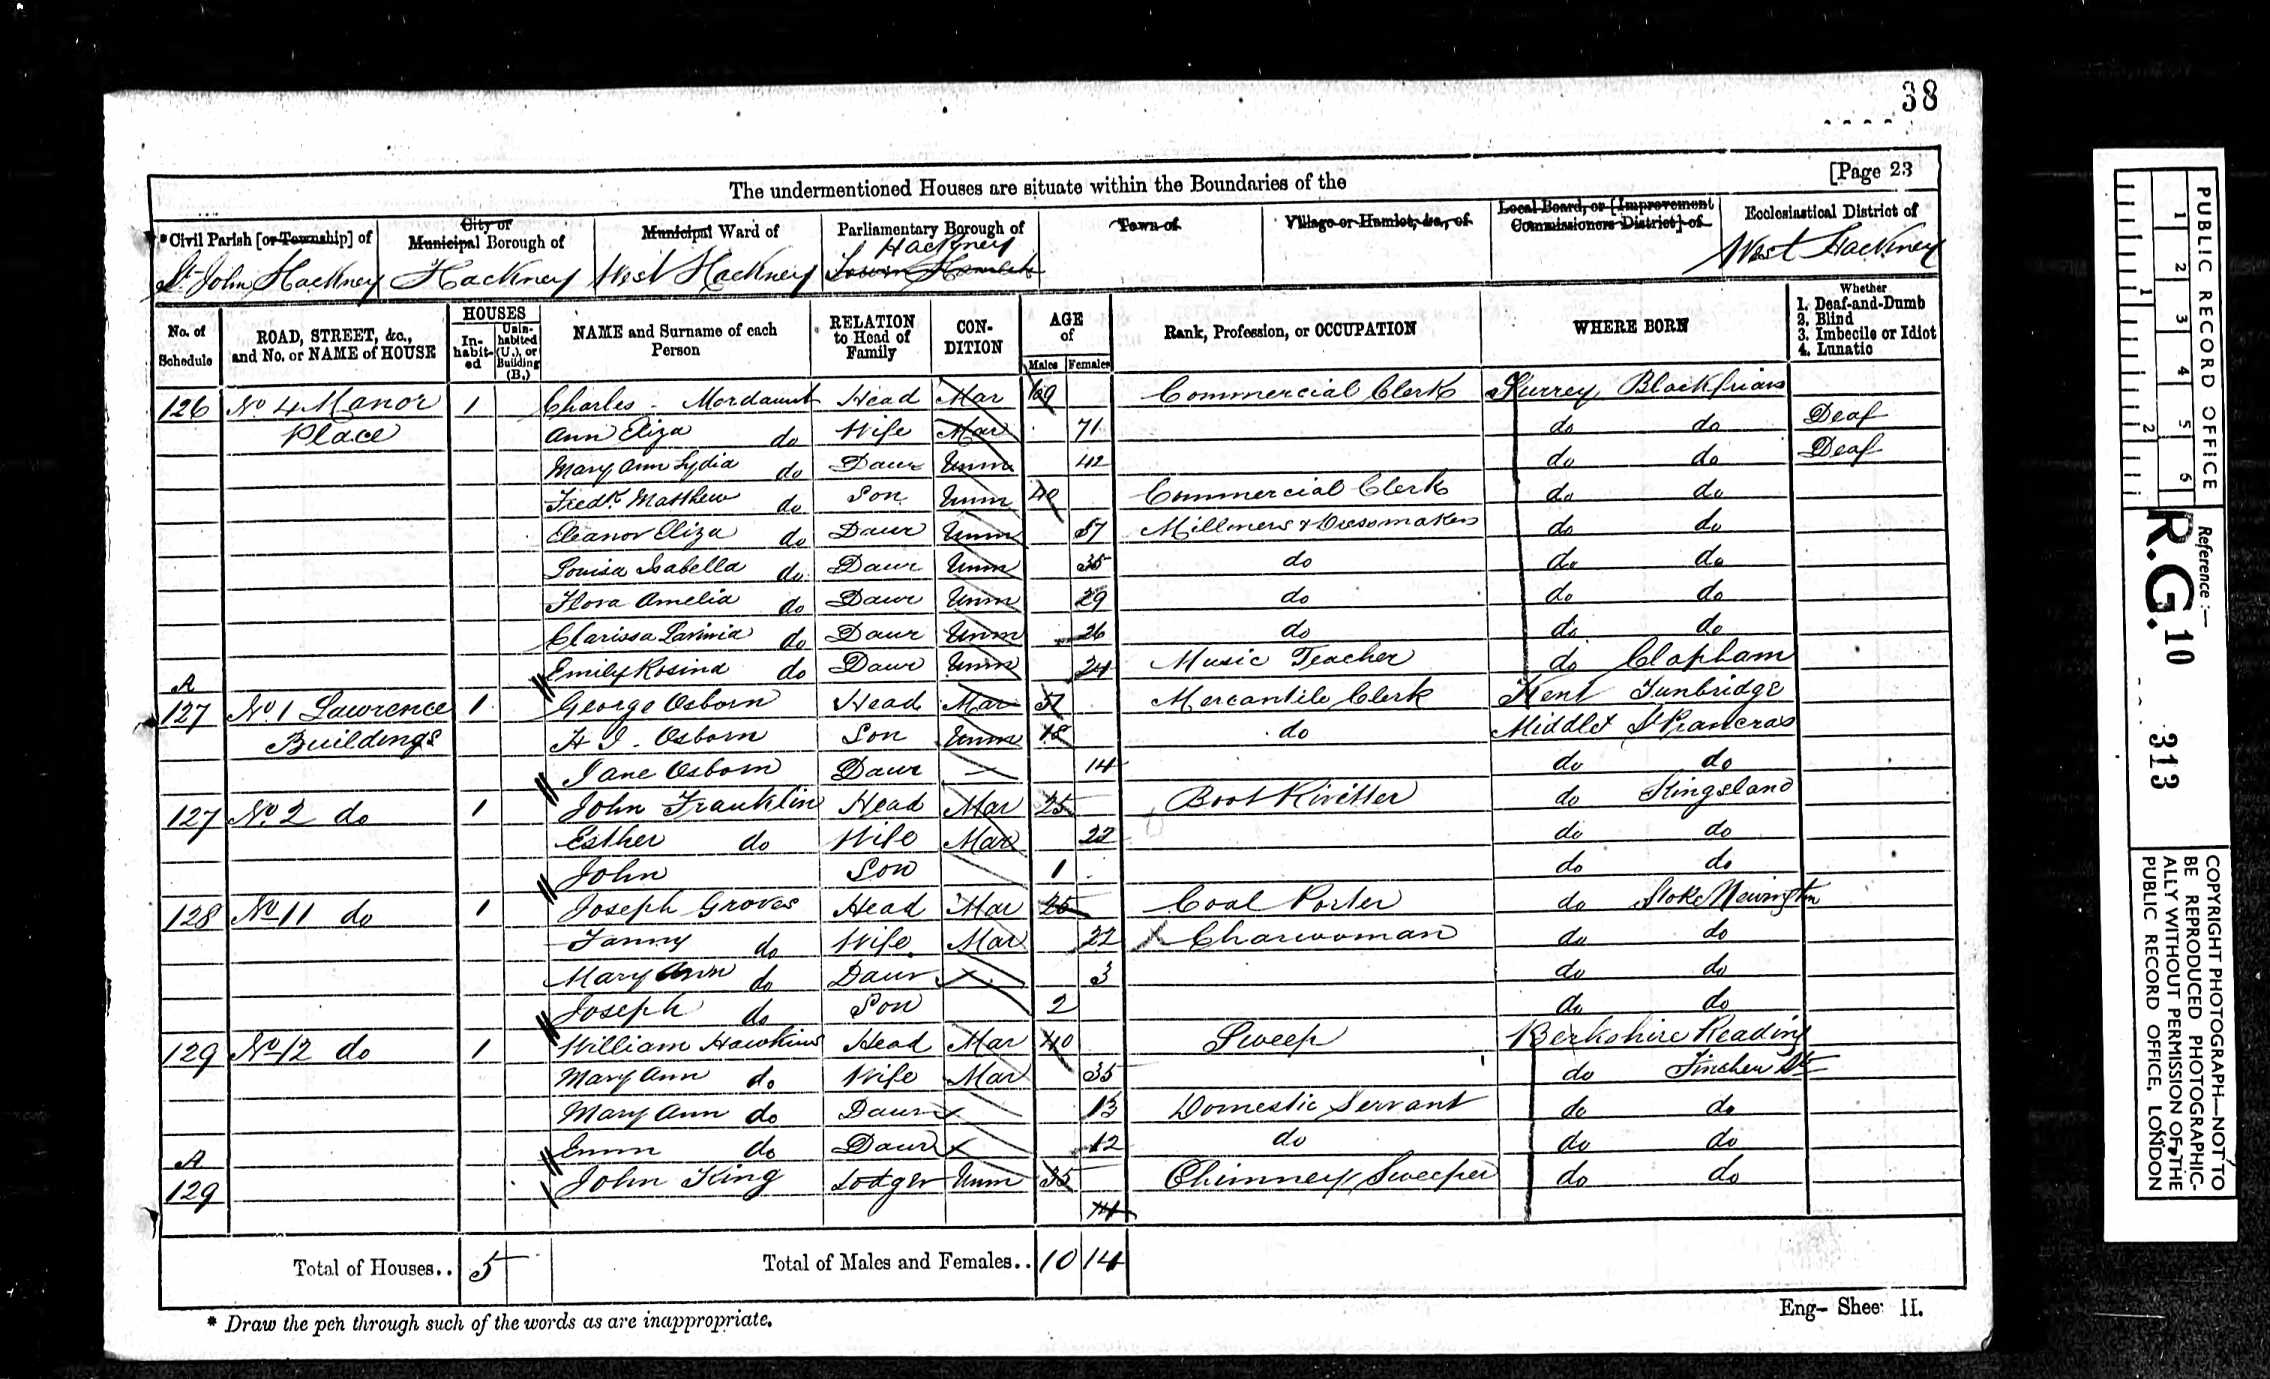 38
[Page 23
The undermentioned Houses are situate within the Boundaries of the
* Civil Parish [or Township] of
City or Municipal Borough of
Municipal Ward of
Parliamentary Borough of
Town of
Village or Hamlet, &c., of
Local Board, or [Improvement Commissioners District] of
Ecclesiastical District of
St John Hackney
Hackney
West Hackney
Hackney
Tower Hamlets
West Hackney
No. of Schedule
ROAD, STREET, &c., and No. or NAME of HOUSE
HOUSES
In-habit-ed
Unin-habited (U.), or Building (B.)
NAME and Surname of each Person
RELATION to Head of Family
CON-DITION
AGE of
Males
Females
Rank, Profession, or OCCUPATION
WHERE BORN
Whether
1. Deaf-and-Dumb
2. Blind
3. Imbecile or Idiot
4. Lunatic
126 No 4 Manor 1 Charles Mordaunt Head Mar 69 Commercial Clerk Surrey Blackfriars
Place Ann Eliza do Wife Mar 71 do do Deaf
Mary Ann Lydia do Daur Unm 42 do do Deaf
Fredk. Matthew do Son Unm 40 Commercial Clerk do do
Eleanor Eliza do Daur Unm 37 Milliners & Dressmakers do do
Louisa Isabella do Daur Unm 35 do do do
Flora Amelia do Daur Unm 29 do do do
Clarissa Lavinia do Daur Unm 26 do do do
A Emily Rosina do Daur Unm 24 Music Teacher do Clapham
127 No 1 Lawrence 1 George Osborn Head Mar 51 Mercantile Clerk Kent Tunbridge
Buildings H J Osborn Son Unm 18 do Middlx St Pancras
Jane Osborn Daur – 14 do do
127 No 2 do 1 John Franklin Head Mar 25 Boot Rivitter do Kingsland
Esther do Wife Mar 22 do do
John Son 1 do do
128 No 11 do 1 Joseph Groves Head Mar 25 Coal Porter do Stoke Newington
Fanny do Wife Mar 22 Charwoman do do
Mary Ann do Daur 3 do do
Joseph do Son 2 do do
129 No 12 do 1 William Hawkins Head Mar 40 Sweep Berkshire Reading
Mary Ann do Wife Mar 35 do
Mary Ann do Daur 13 Domestic Servant do do
Emm do Daur 12 do do do
A
129 John King Lodger Unm 35 Chimney Sweeper do do
14
Total of Houses.. 5
Total of Males and Females.. 10 14
* Draw the pen through such of the words as are inappropriate.
Eng- Shee H.
PUBLIC RECORD OFFICE
1 2 3 4 5 6
1 2
Reference:—
R.G. 10
313
COPYRIGHT PHOTOGRAPH—NOT TO
BE REPRODUCED PHOTOGRAPHIC-
ALLY WITHOUT PERMISSION OF THE
PUBLIC RECORD OFFICE, LONDON